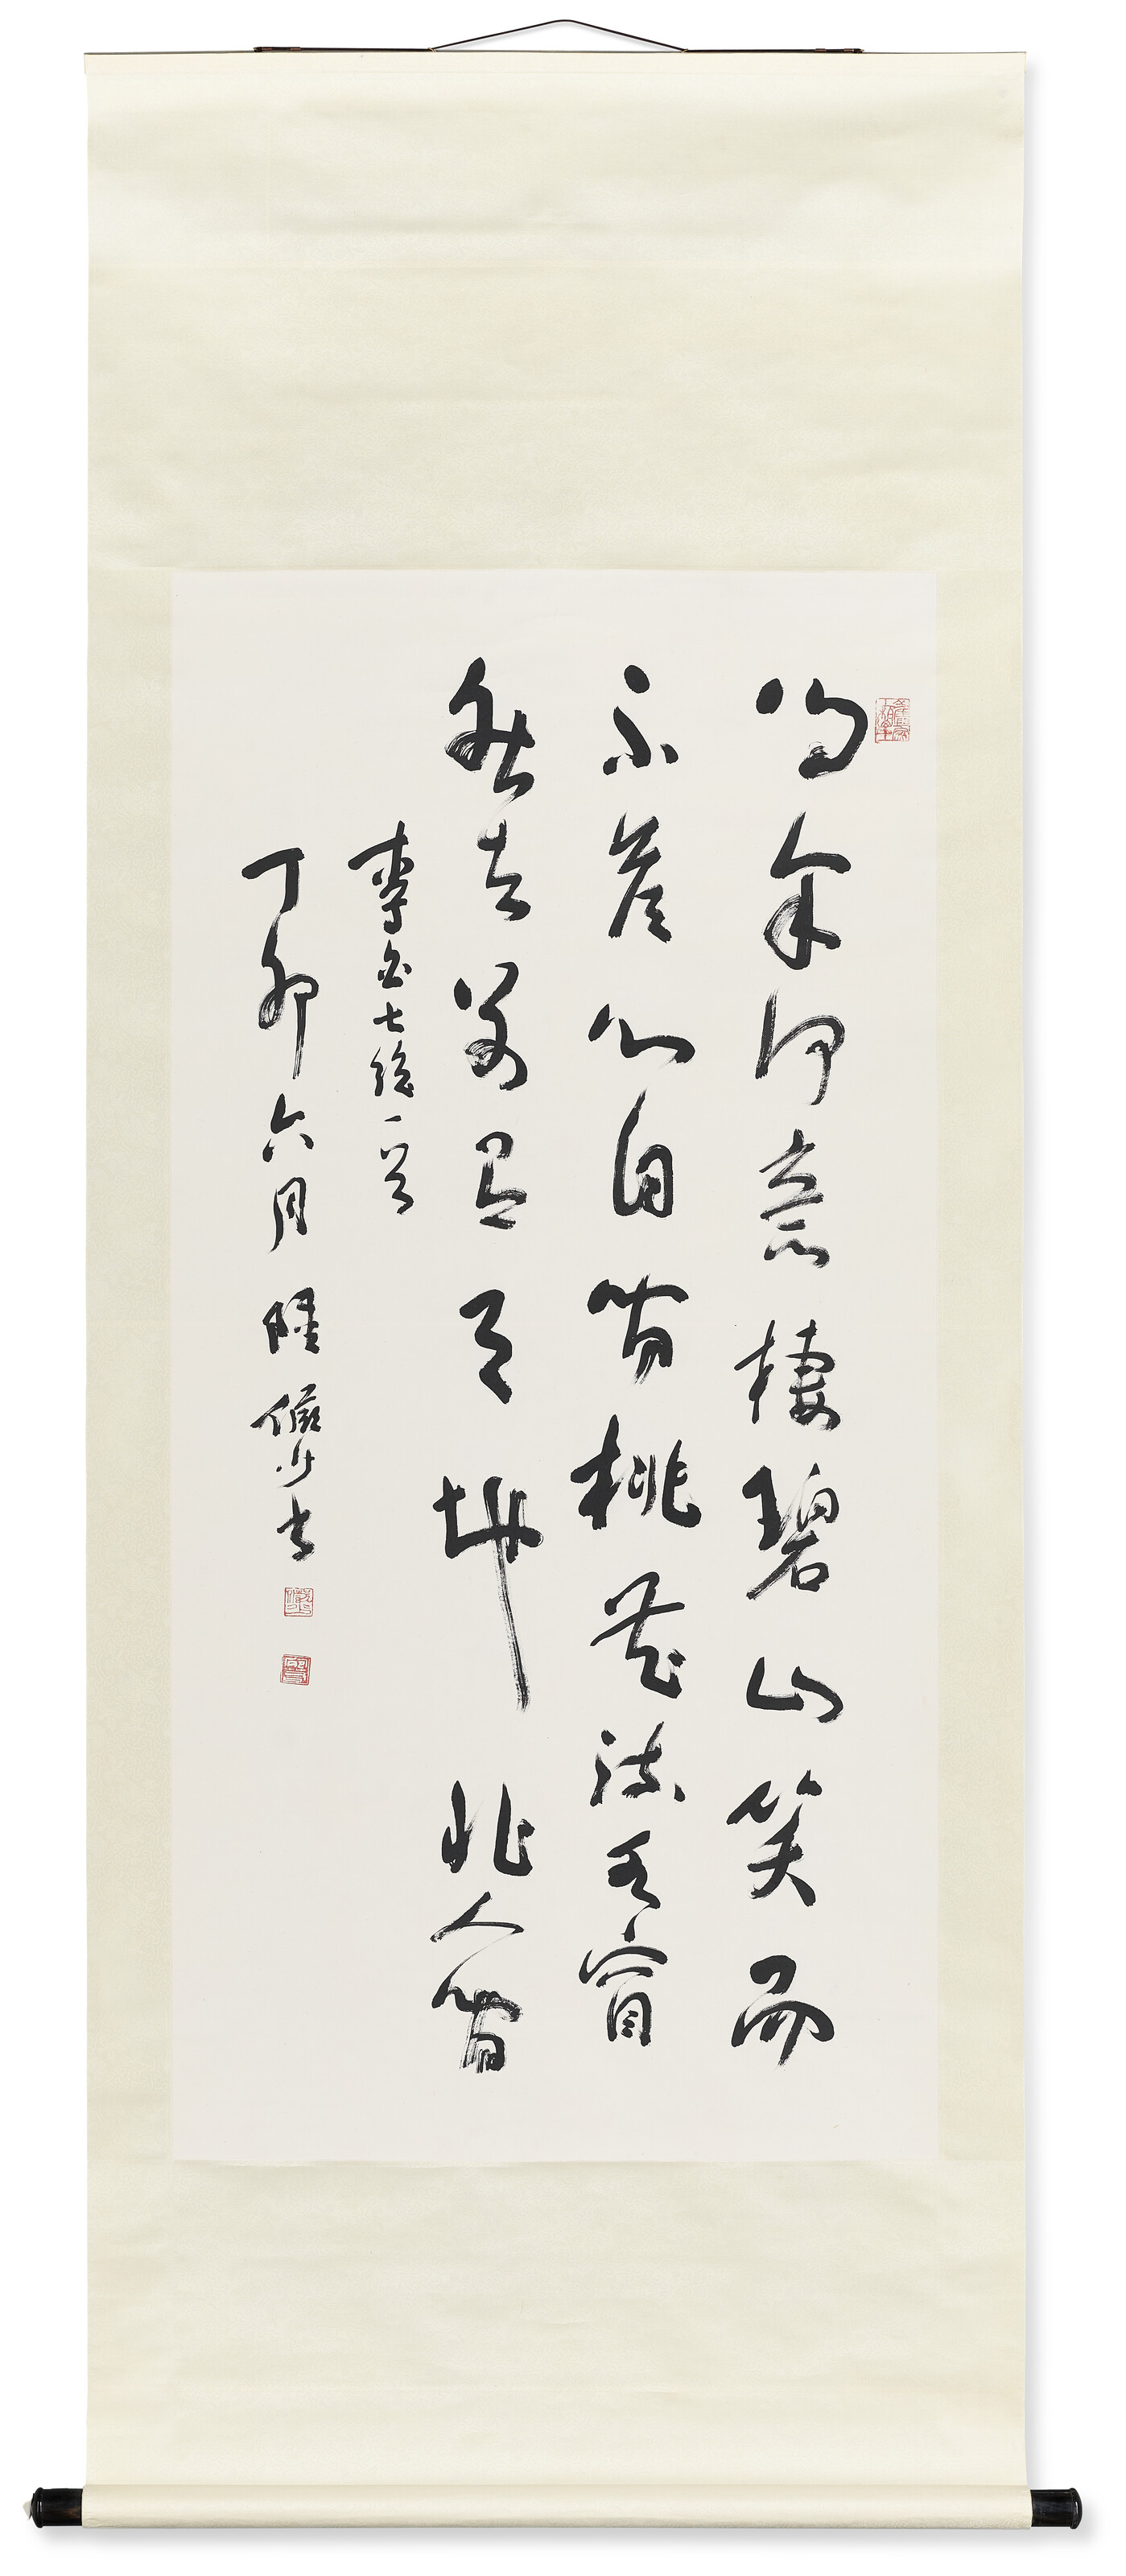 問余何意棲碧山笑而
不答心自閒桃花流水窅
然去別有天地非人間
李白七絕一首
丁卯六月陸儼少書